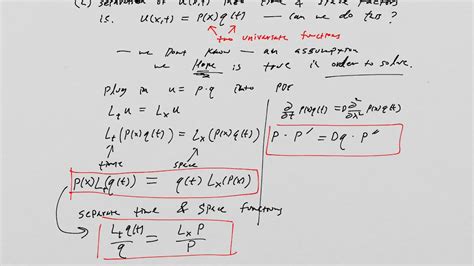 (2) separation of u(x,t) into time & space factors
is. u(x,t) = P(x) q(t) — can we do this ?
two univariate functions
— we Dont know — an assumption
we Hope is true in order to solve.
plug in u = p·q into PDE
L_t u = L_x u
L_t (P(x)q(t)) = L_x (P(x)q(t))
time space
P(x) L_t (q(t)) = q(t) L_x (P(x))
separate time & space functions
L_t q(t) / q = L_x P / P
∂/∂t P(x)q(t) = D ∂²/∂x² P(x)q(t)
P · P' = Dq · P"